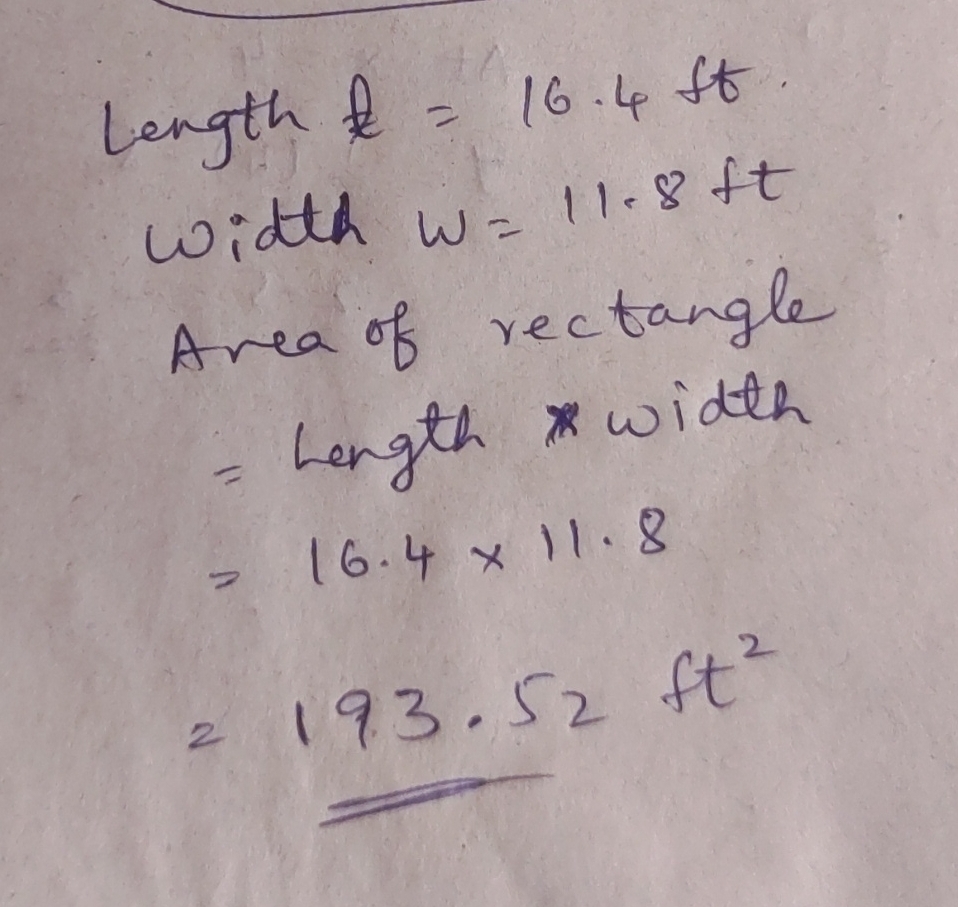 Length l = 16.4 ft.
Width w = 11.8 ft
Area of rectangle
= Length * width
= 16.4 x 11.8
= 193.52 ft²